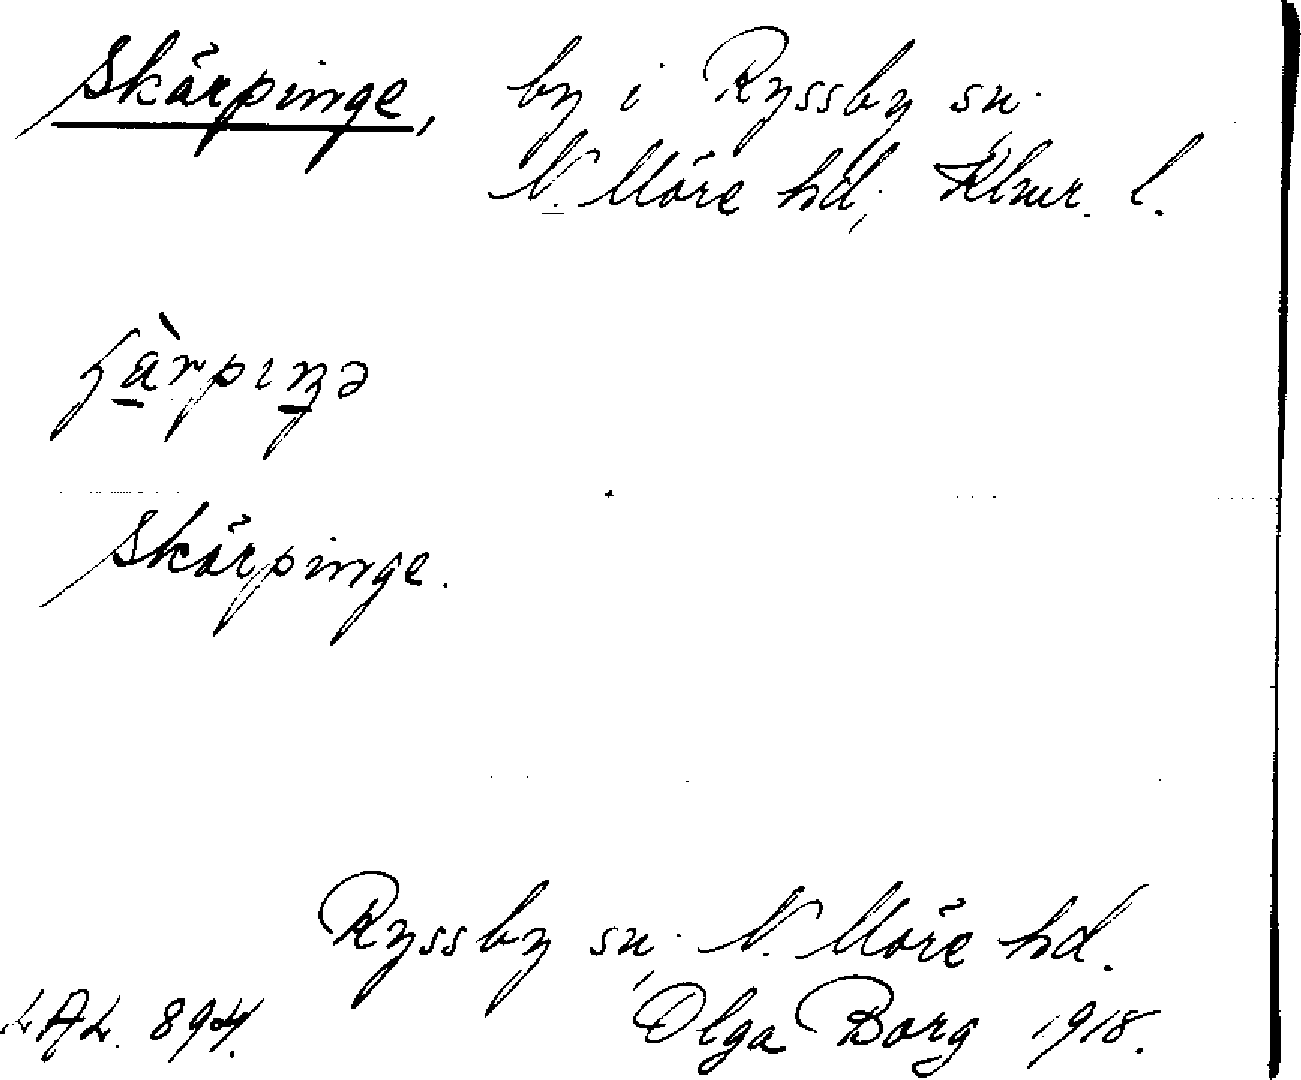 Skärpinge, by i Ryssby sn.
N. Möre hd; Klmr. l.
Skärpinge.
Ryssby sn, N. Möre hd.
LAL. 894. Olga Borg 1918.